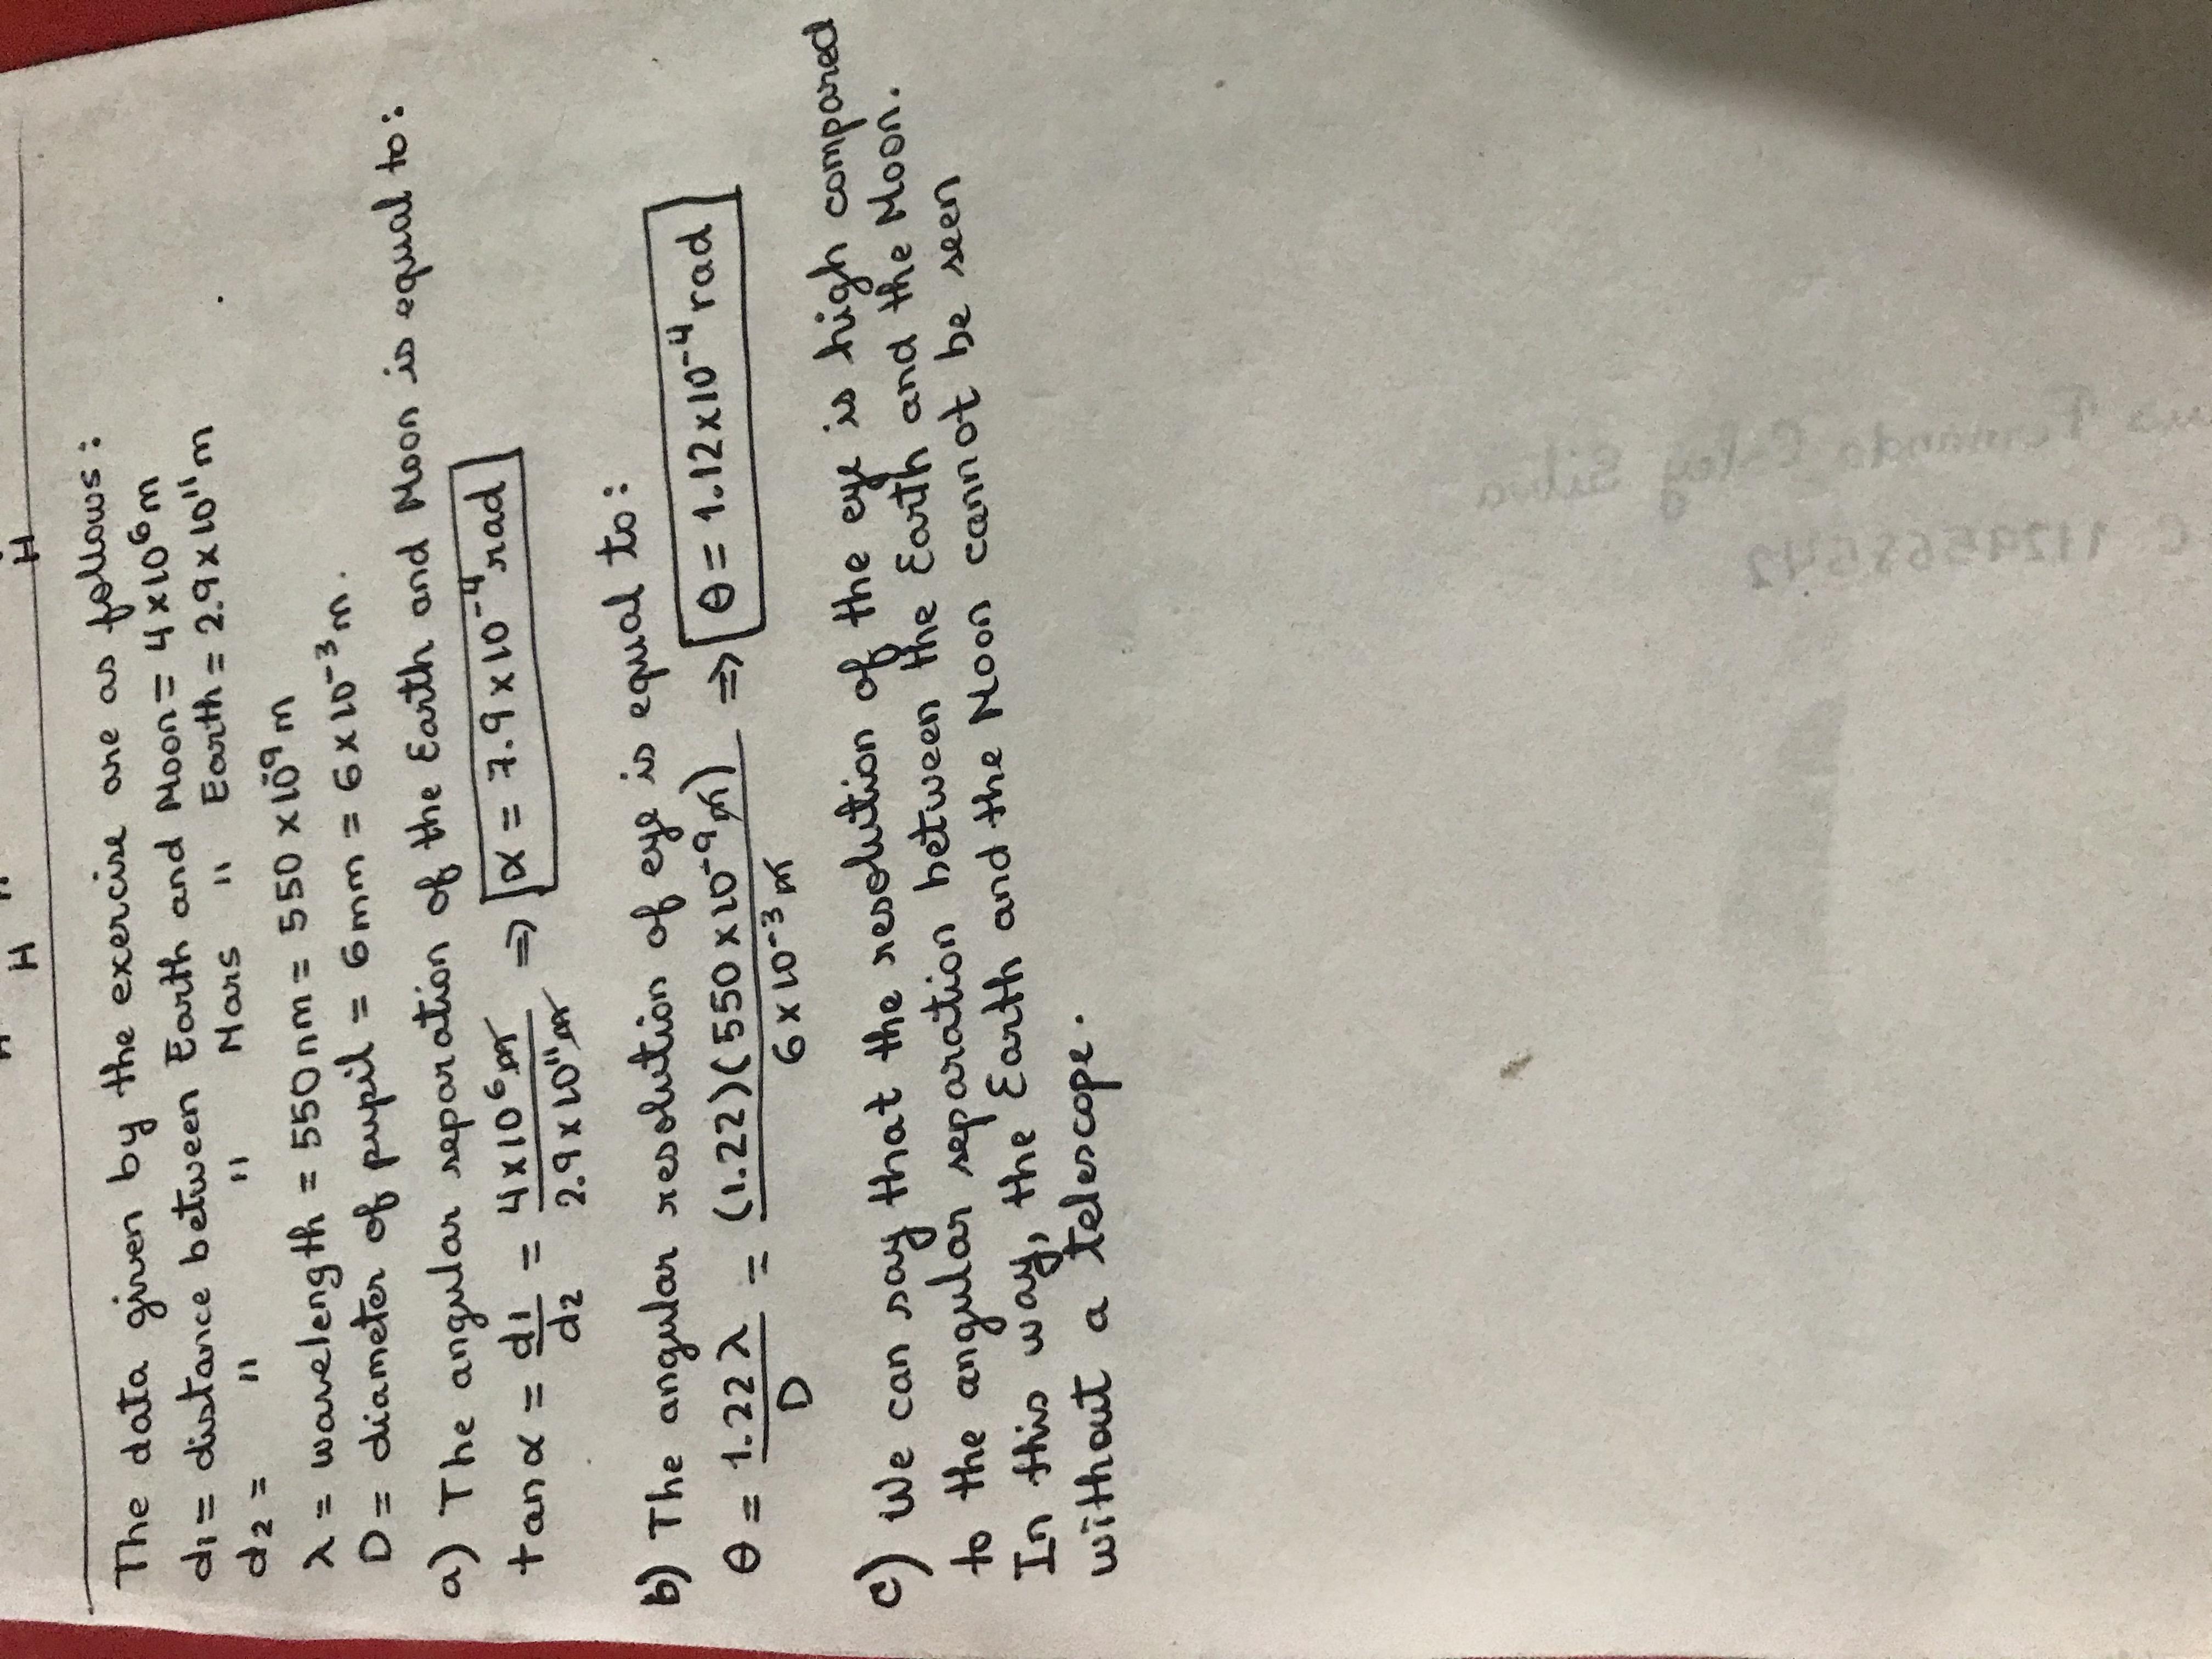 H H
The data given by the exercise are as follows:
d1 = distance between Earth and Moon = 4 x 10^6 m
d2 = " " " Mars " Earth = 2.9 x 10^11 m
λ = wavelength = 550nm = 550 x 10^-9 m
D = diameter of pupil = 6mm = 6 x 10^-3 m.
a) The angular separation of the Earth and Moon is equal to:
tan α = d1/d2 = 4 x 10^6 m / 2.9 x 10^11 m => α = 7.9 x 10^-4 rad
b) The angular resolution of eye is equal to:
θ = 1.22 λ / D = (1.22)(550 x 10^-9 m) / 6 x 10^-3 m => θ = 1.12 x 10^-4 rad
c) We can say that the resolution of the eye is high compared
to the angular separation between the Earth and the Moon.
In this way, the Earth and the Moon cannot be seen
without a telescope.